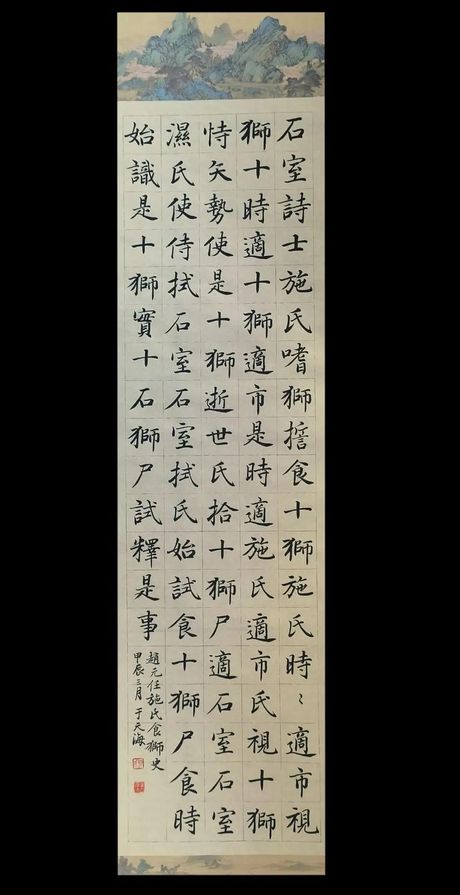 石室詩士施氏嗜獅誓食十獅施氏時〻適市視
獅十時適十獅適市是時適施氏適市氏視十獅
恃矢勢使是十獅逝世氏拾十獅尸適石室石室
濕氏使侍拭石室石室拭氏始試食十獅尸食時
始識是十獅實十石獅尸試釋是事
趙元任施氏食獅史
甲辰三月于天海